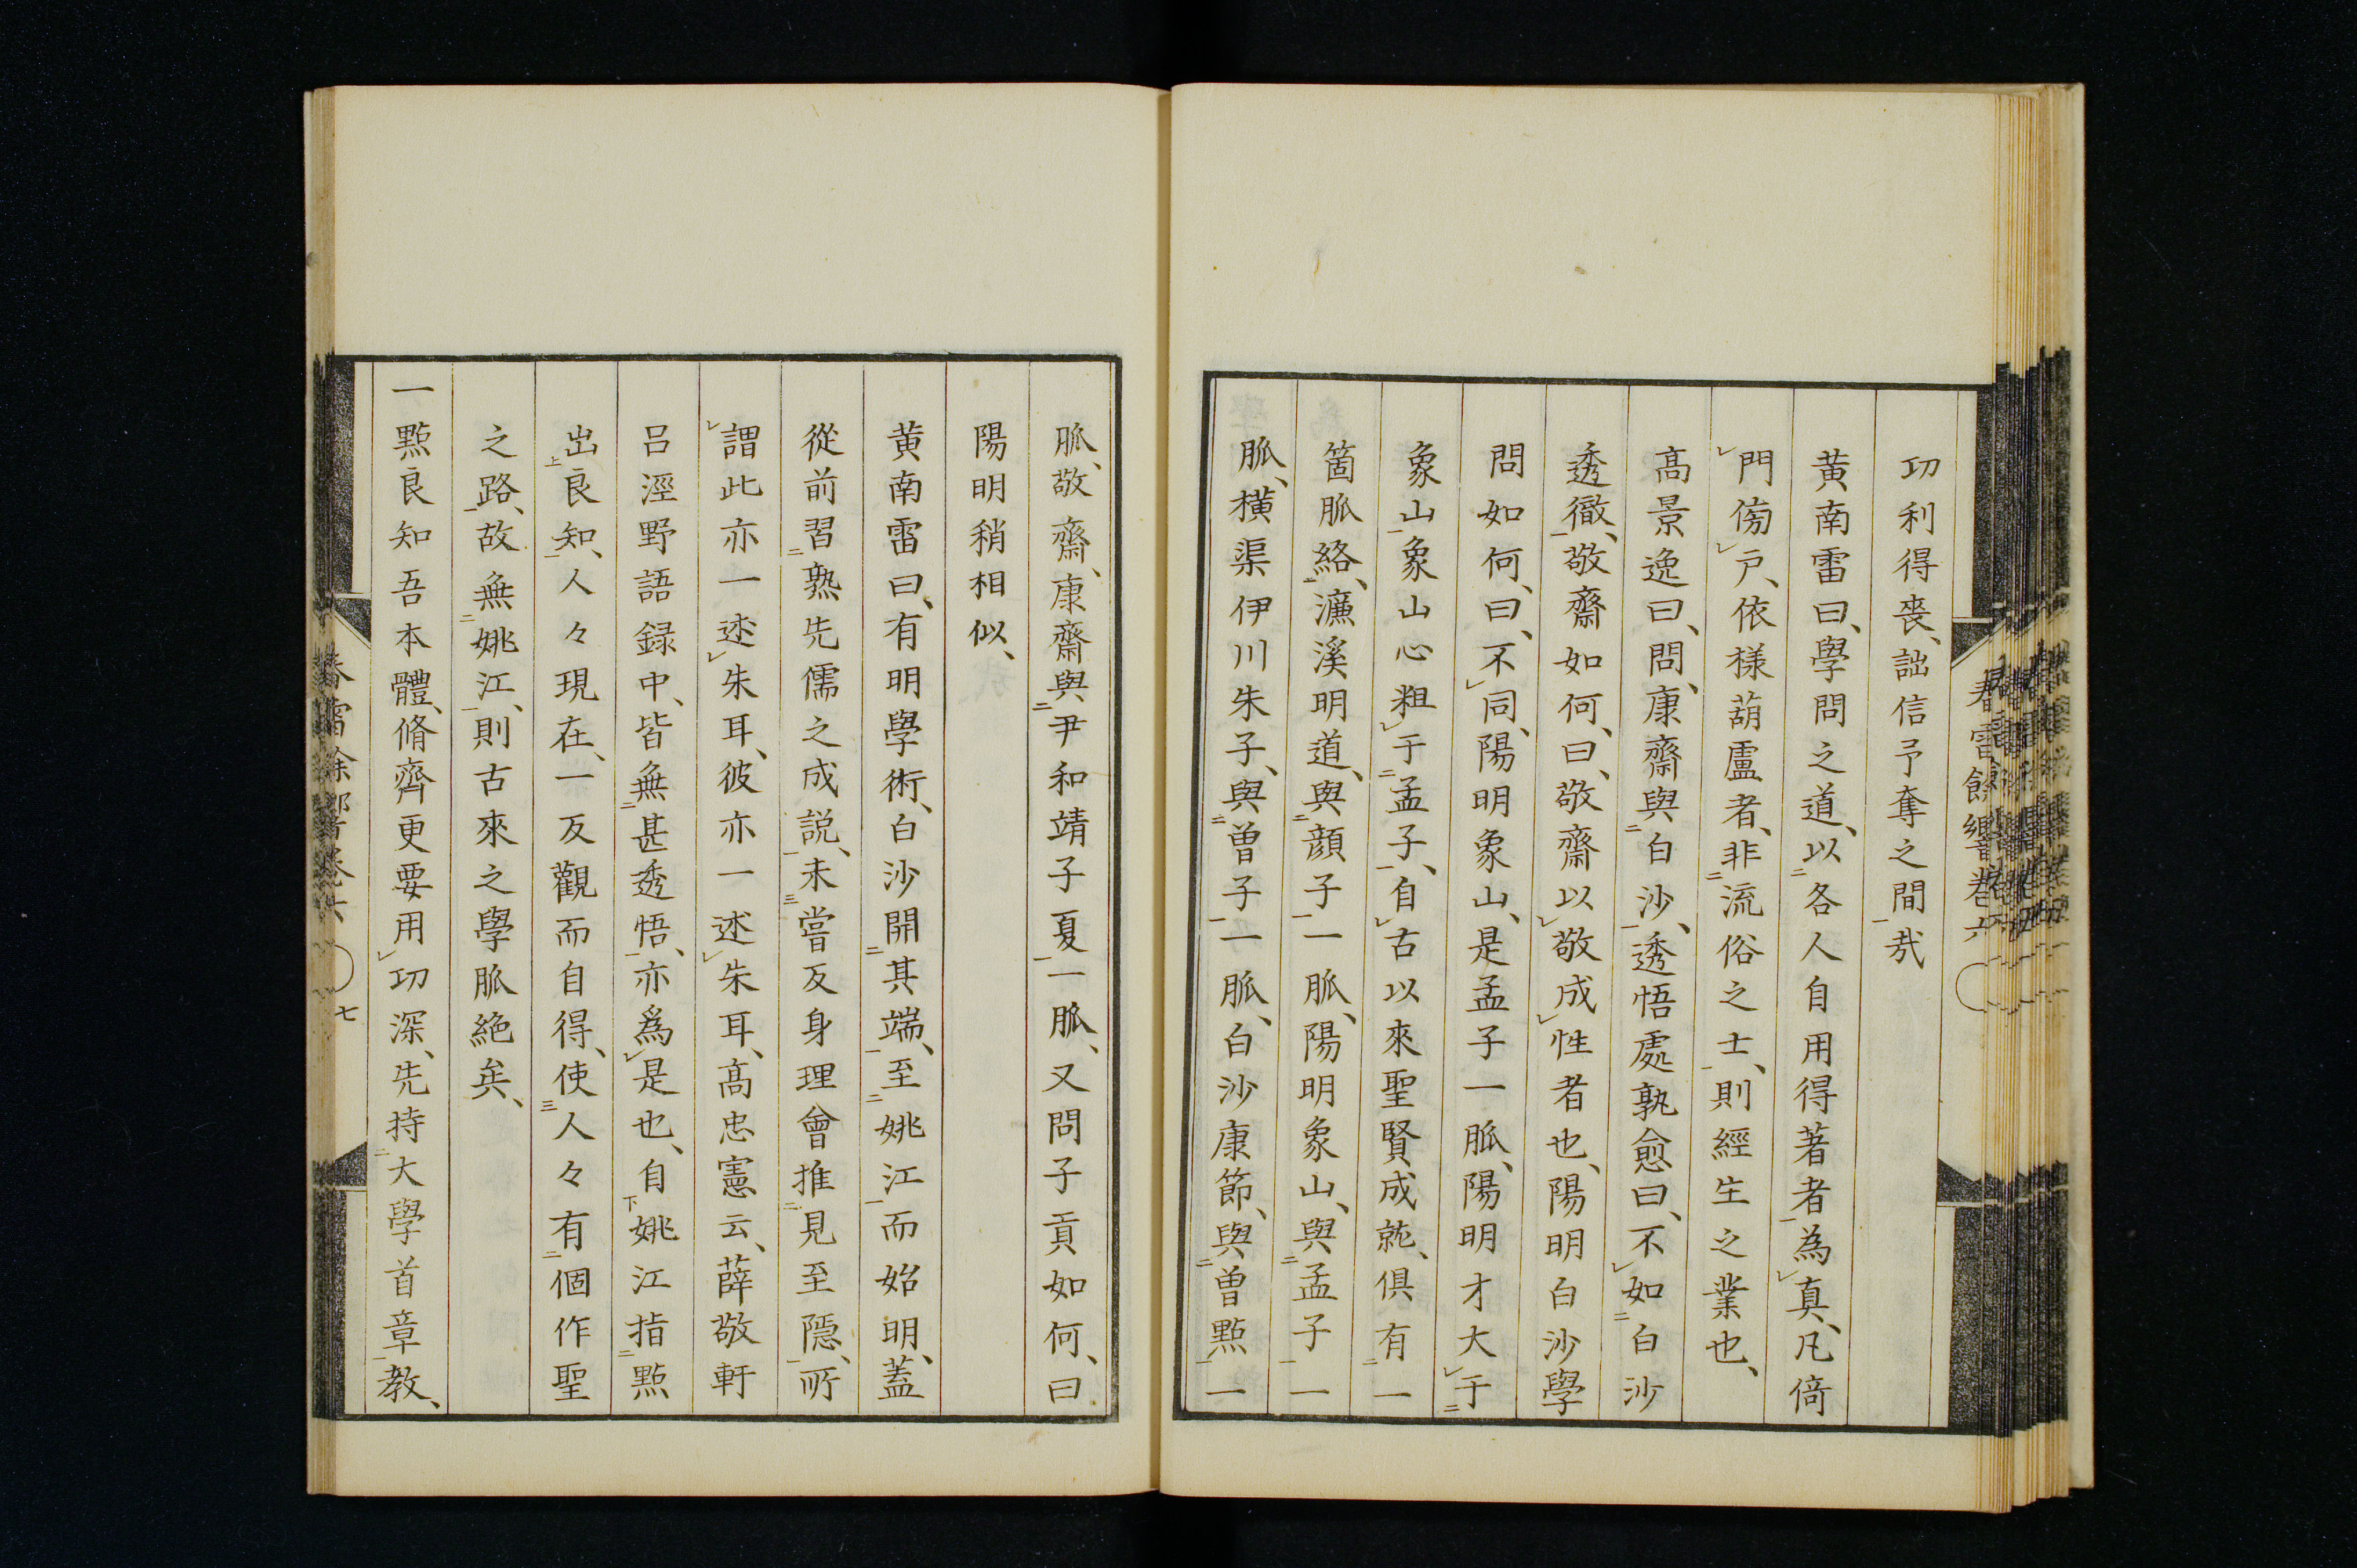 春雷餘響卷六
功利得喪、詘信予奪之間哉
黃南雷曰、學問之道、以各人自用得著者為真、凡倚
門傍戸、依樣葫蘆者、非流俗之士、則經生之業也、
高景逸曰、問、康齋與白沙、透悟處孰愈曰、不如白沙
透徹、敬齋如何、曰、敬齋以敬成性者也、陽明白沙學
問如何、曰、不同、陽明象山、是孟子一脈、陽明才大于
象山象山心粗于孟子、自古以來聖賢成就、俱有一
箇脈絡、濂溪明道、與顔子一脈、陽明象山、與孟子一
脈、橫渠伊川朱子、與曾子一脈、白沙康節、與曾點一
脈、敬齋、康齋與尹和靖子夏一脈、又問子貢如何、曰
陽明稍相似、
黃南雷曰、有明學術、白沙開其端、至姚江而始明、蓋
從前習熟先儒之成説、未嘗反身理會推見至隱、所
謂此亦一述朱耳、彼亦一述朱耳、高忠憲云、薛敬軒
呂涇野語録中、皆無甚透悟、亦爲是也、自姚江指點
出良知、人々現在、一反觀而自得、使人々有個作聖
之路、故無姚江、則古來之學脈絶矣、
一點良知吾本體、脩齊更要用功深、先持大學首章教、
春雷餘響卷六
七